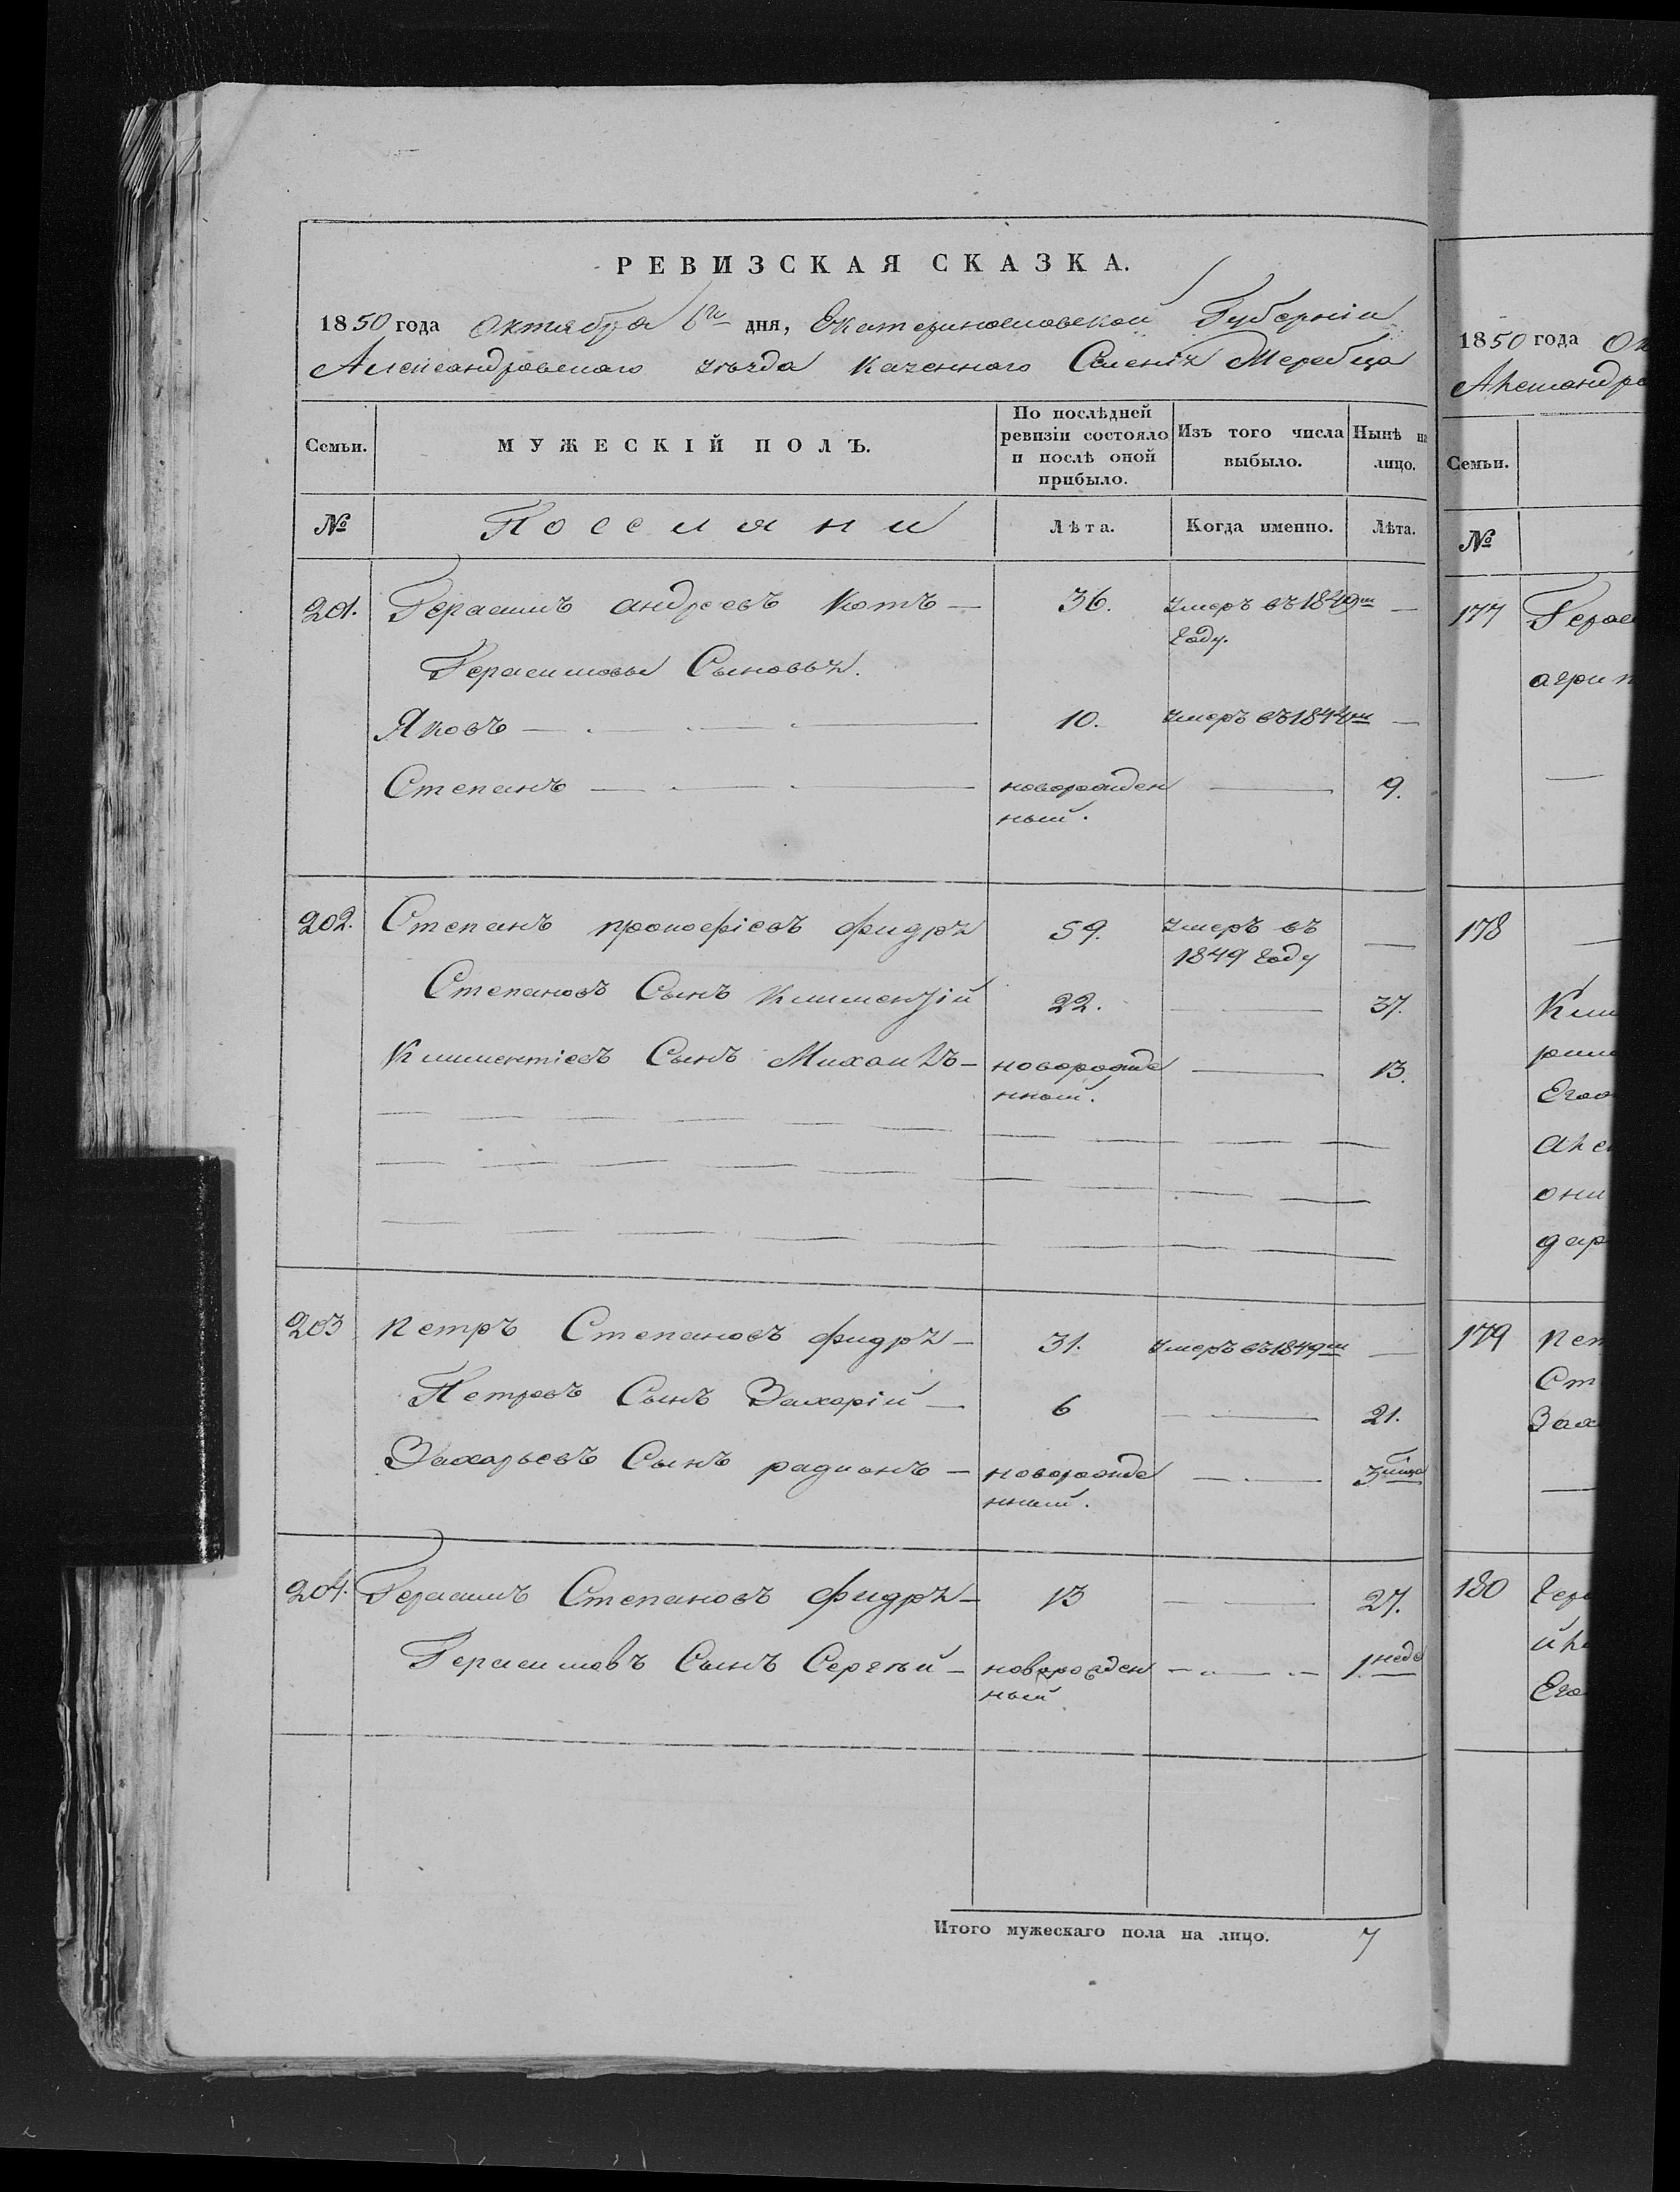 РЕВИЗСКАЯ СКАЗКА.
1850 года Октября 6го дня, Екатеринославской Губерніи
Александровскаго уѣзда Казеннаго Селенія Жеребца
Семьи. МУЖЕСКІЙ ПОЛЪ. По послѣдней ревизіи состояло и послѣ оной прибыло. Изъ того числа выбыло. Нынѣ на лицо.
№ Поселяни Лѣта. Когда именно. Лѣта.
201. Герасимъ андреевъ Котъ — 36. умеръ въ 1849м —
году.
Герасимовы Сыновья.
Яковъ — 10. умеръ въ 1844м —
Степанъ — новорожден — 9.
ный.
202. Степанъ прокофіевъ фидря 59. умеръ въ —
1849 году
Степановъ Сынъ Климентій 22. — 37.
Климентіевъ Сынъ Михаилъ — новорожде — 13.
нный.
203 петръ Степановъ фидря — 31. умеръ въ 1849м —
Петровъ Сынъ Захарій — 6 — 21.
Захарьевъ Сынъ радионъ — новорожде — 3
нный.
204. Герасимъ Степановъ Фидря — 13 — 27.
Герасимовъ Сынъ Сергѣй — новорожден — 1. неде
ный
Итого мужескаго пола на лицо. 7
1850 года
Семьи.
№
177
178
179
180